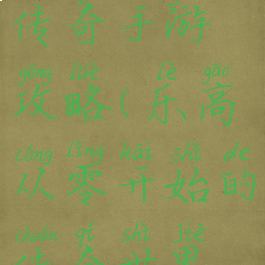 传奇手游
gōng lüè lè gāo
攻略(乐高
cóng líng kāi shǐ de
从零开始的
chuán qí shì jiè
传奇世界